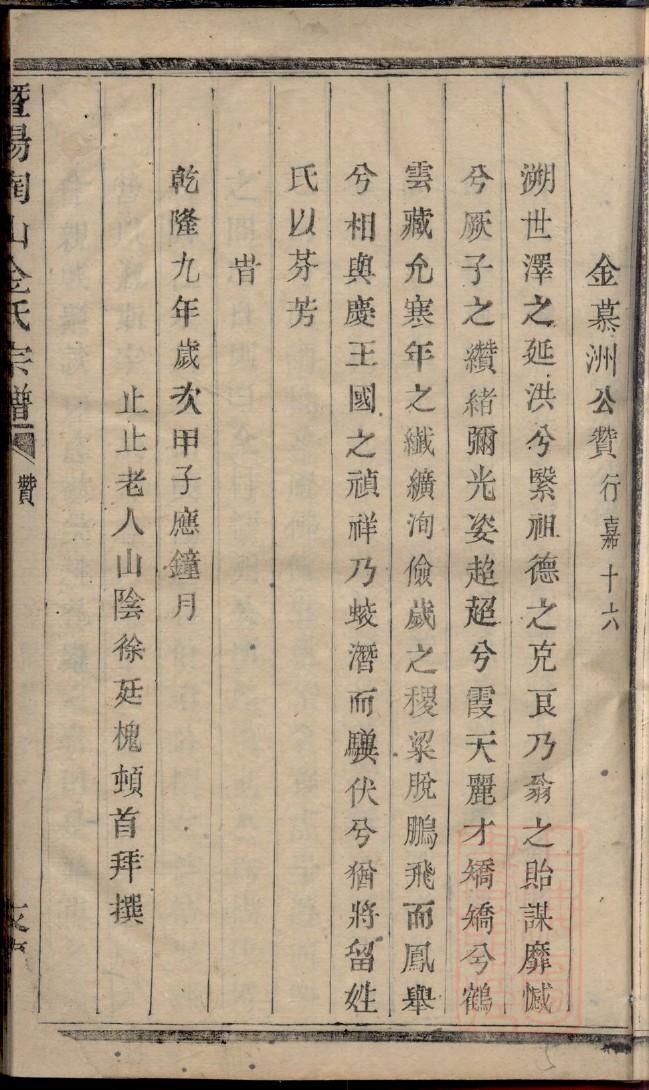 金慕洲公贊行嘉十六
溯世澤之延洪兮繄祖德之克良乃翁之貽謀靡憾
兮厥子之纘緒彌光姿超超兮霞天麗才矯矯兮鶴
雲藏允寒年之纖纊洵儉歲之稷粱脫鵬飛而鳳舉
兮相與慶王國之禎祥乃蛟潛而驥伏兮猶將留姓
氏以芬芳
旹
乾隆九年歲次甲子應鐘月
止止老人山陰徐廷槐頓首拜撰
暨陽南山金氏宗譜
贊